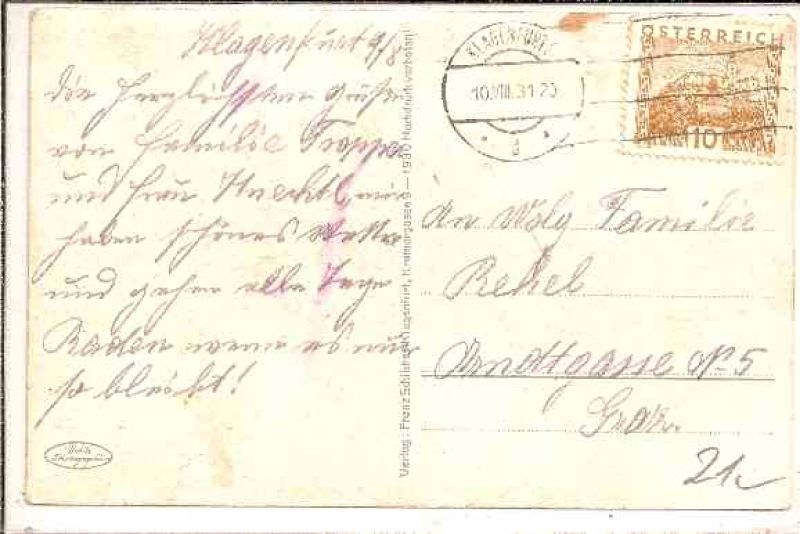 Klagenfurt 9/8
Die herzlichsten Grüße
von Familie Tropper
und Frau Knechtl, wir
haben schönes Wetter
und gehen alle Tage
Baden wenn es nur
so bleibt!
Verlag: Franz Schilcher, Klagenfurt, 9 — 1930 Nachdruck verboten
KLAGENFURT
10.VIII.31.20
ÖSTERREICH
10
An Wolg Familie
Rekel
Arndtgasse No 5
Graz.